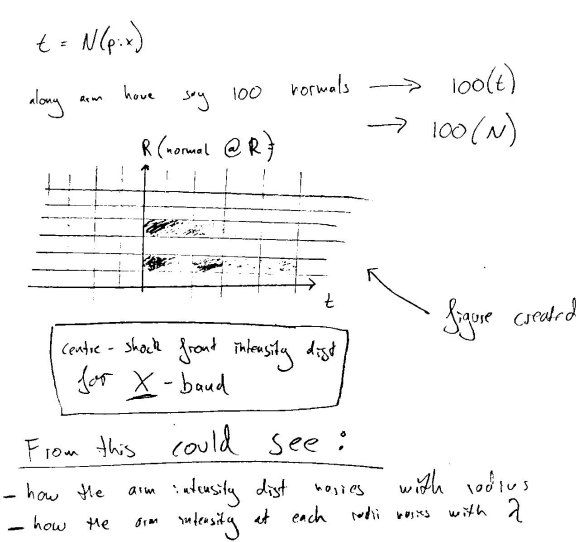 t = N(pix)
along arm have say 100 normals → 100(t)
→ 100(N)
R (normal @ R)
t
figure created
centre - shock front intensity dist
for X - band
From this could see :
- how the arm intensity dist varies with radius
- how the arm intensity at each radii varies with λ